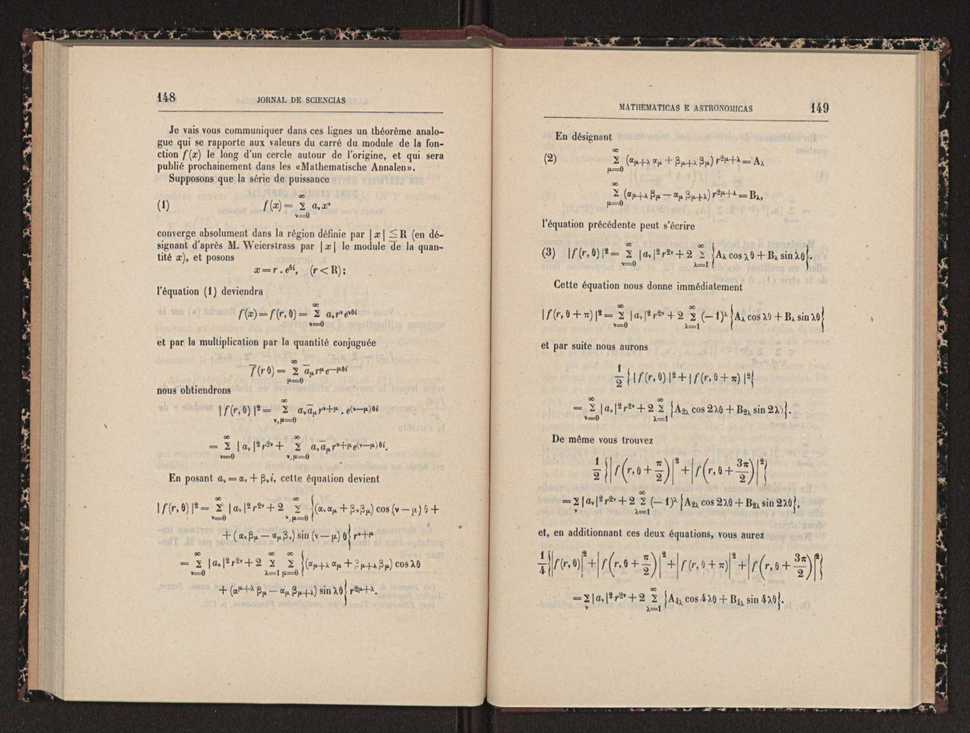 148
JORNAL DE SCIENCIAS
Je vais vous communiquer dans ces lignes un théorème analo-
gue qui se rapporte aux valeurs du carré du module de la fon-
ction f(x) le long d'un cercle autour de l'origine, et qui sera
publié prochainement dans les «Mathematische Annalen».
Supposons que la série de puissance
(1) f(x) = Σ_{ν=0}^{∞} a_ν x^ν
converge absolument dans la région définie par |x| ≦ R (en dé-
signant d'après M. Weierstrass par |x| le module de la quan-
tité x), et posons
x = r . e^{θi}, (r < R);
l'équation (1) deviendra
f(x) = f(r, θ) = Σ_{ν=0}^{∞} a_ν r^ν e^{νθi}
et par la multiplication par la quantité conjuguée
f̅(r θ) = Σ_{μ=0}^{∞} a̅_μ r^μ e^{−μθi}
nous obtiendrons
|f(r, θ)|² = Σ_{ν,μ=0}^{∞} a_ν a̅_μ r^{ν+μ} . e^{(ν−μ)θi}
= Σ_{ν=0}^{∞} |a_ν|² r^{2ν} + Σ_{ν,μ=0}^{∞} a_ν a̅_μ r^{ν+μ} e^{(ν−μ)θi}.
En posant a_ν = α_ν + β_ν i, cette équation devient
|f(r, θ)|² = Σ_{ν=0}^{∞} |a_ν|² r^{2ν} + 2 Σ_{ν,μ=0}^{∞} {(α_ν α_μ + β_ν β_μ) cos (ν − μ) θ +
+ (α_ν β_μ − α_μ β_ν) sin (ν − μ) θ} r^{ν+μ}
= Σ_{ν=0}^{∞} |a_ν|² r^{2ν} + 2 Σ_{λ=1}^{∞} Σ_{μ=0}^{∞} {(α_{μ+λ} α_μ + β_{μ+λ} β_μ) cos λθ
+ (α^{μ+λ} β_μ − α_μ β_{μ+λ}) sin λθ} r^{2μ+λ}.
MATHEMATICAS E ASTRONOMICAS
149
En désignant
(2) Σ_{μ=0}^{∞} (α_{μ+λ} α_μ + β_{μ+λ} β_μ) r^{2μ+λ} = A_λ
Σ_{μ=0}^{∞} (α_{μ+λ} β_μ − α_μ β_{μ+λ}) r^{2μ+λ} = B_λ,
l'équation précédente peut s'écrire
(3) |f(r, θ)|² = Σ_{ν=0}^{∞} |a_ν|² r^{2ν} + 2 Σ_{λ=1}^{∞} {A_λ cos λθ + B_λ sin λθ}.
Cette équation nous donne immédiatement
|f(r, θ + π)|² = Σ_{ν=0}^{∞} |a_ν|² r^{2ν} + 2 Σ_{λ=1}^{∞} (−1)^λ {A_λ cos λθ + B_λ sin λθ}
et par suite nous aurons
1/2 {|f(r, θ)|² + |f(r, θ + π)|²}
= Σ_{ν=0}^{∞} |a_ν|² r^{2ν} + 2 Σ_{λ=1}^{∞} {A_{2λ} cos 2λθ + B_{2λ} sin 2λ)}.
De même vous trouvez
1/2 {|f(r, θ + π/2)|² + |f(r, θ + 3π/2)|²}
= Σ_ν |a_ν|² r^{2ν} + 2 Σ_{λ=1}^{∞} (−1)^λ {A_{2λ} cos 2λθ + B_{2λ} sin 2λθ},
et, en additionnant ces deux équations, vous aurez
1/4 {|f(r, θ)|² + |f(r, θ + π/2)|² + |f(r, θ + π)|² + |f(r, θ + 3π/2)|²}
= Σ_ν |a_ν|² r^{2ν} + 2 Σ_{λ=1}^{∞} {A_{4λ} cos 4λθ + B_{4λ} sin 4λθ}.